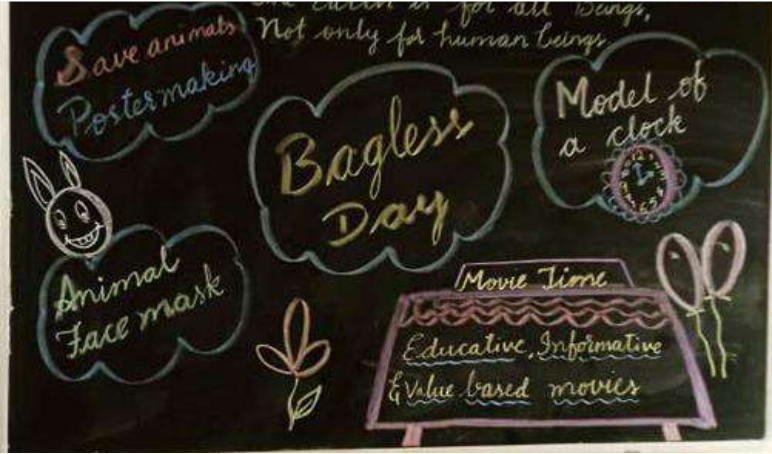 The Earth is for all Beings,
Not only for human beings
Save animals
Postermaking
Bagless
Day
Model of
a clock
Animal
Face mask
Movie Time
Educative, Informative
& Value based movies